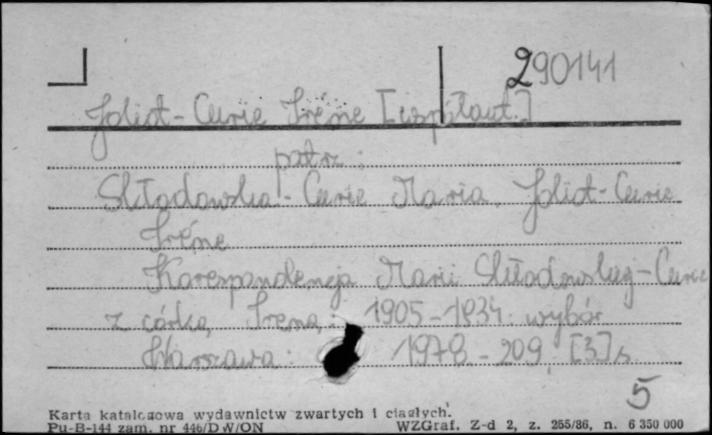 290141
Joliot-Curie Irène [współaut.]
patrz:
Skłodowska-Curie Maria, Joliot-Curie
Irène
Korespondencja Marii Skłodowskiej-Curie
z córką Ireną: 1905-1934: wybór
Warszawa: 1978.- 209, [3] s.
5
Karta katalogowa wydawnictw zwartych i ciągłych.
Pu-B-144 zam. nr 446/DW/ON WZGraf. Z-d 2, z. 265/86, n. 6 350 000